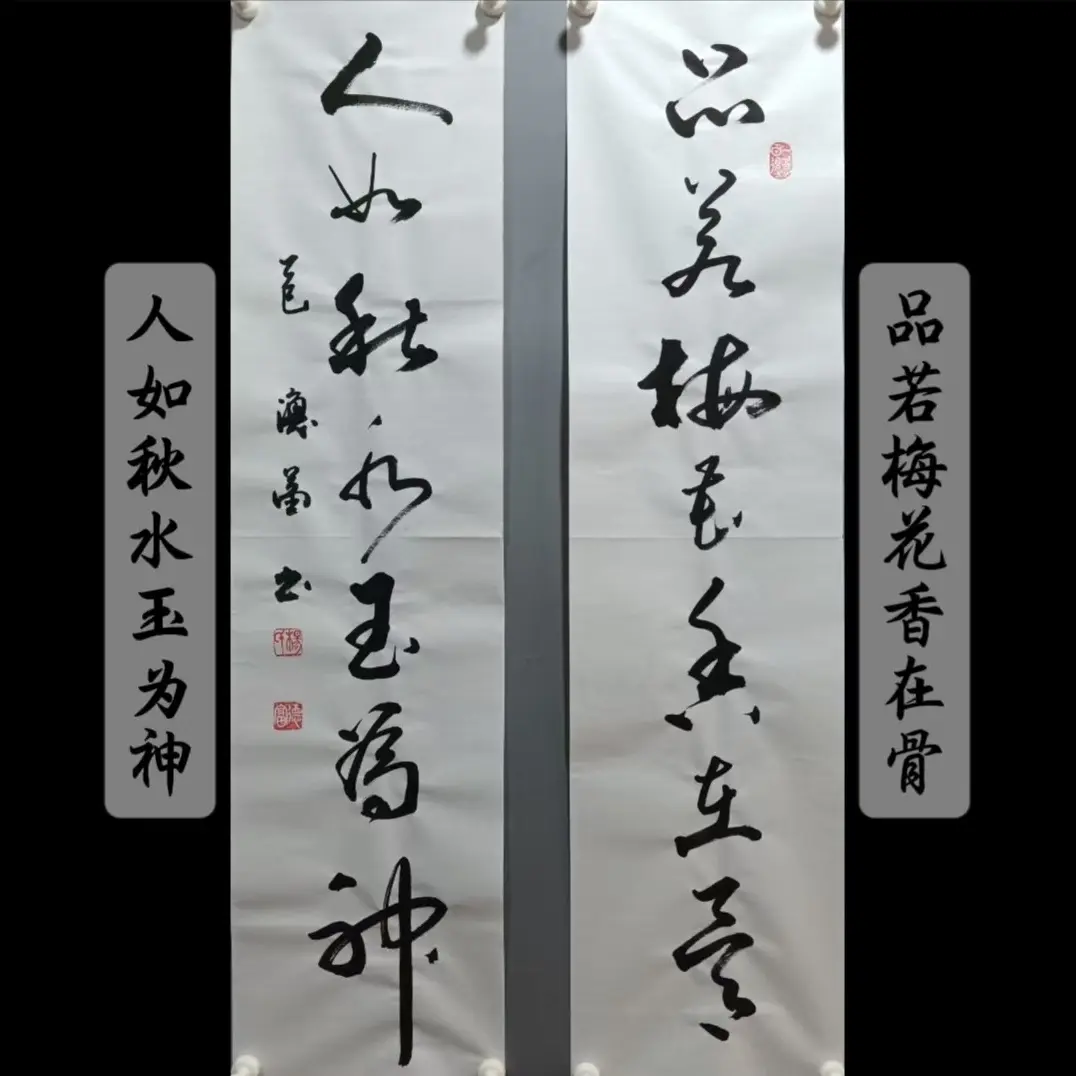 品若梅花香在骨
人如秋水玉為神
書
品若梅花香在骨
人如秋水玉为神